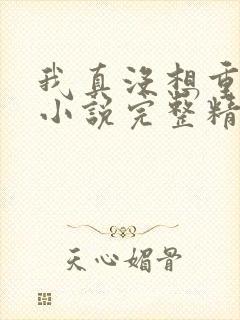 我真没想重
小说完整精
天心媚骨